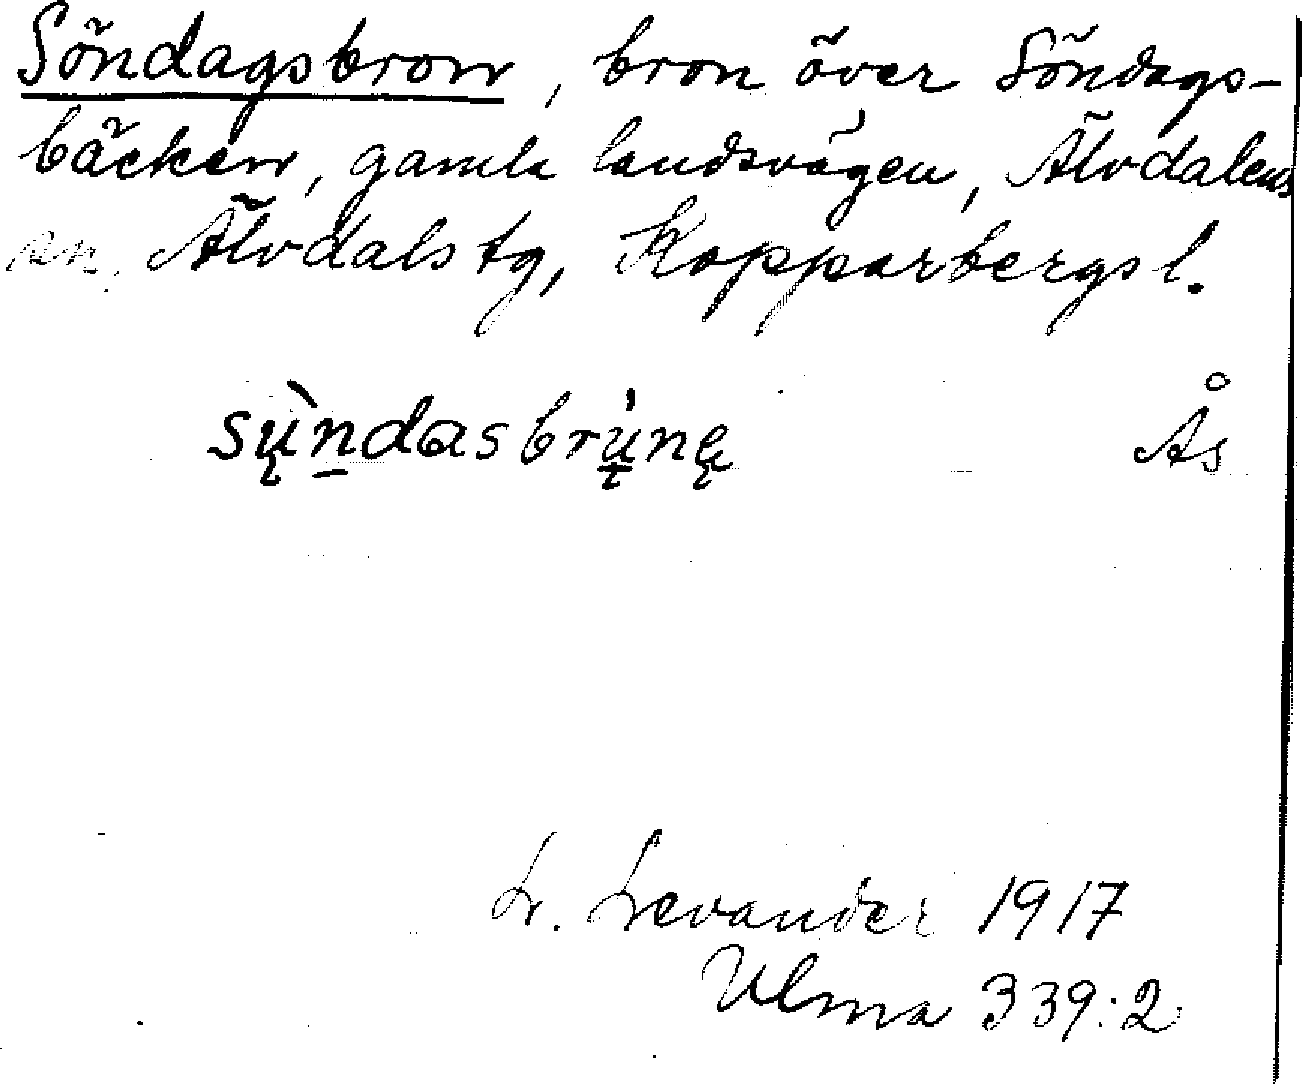 Söndagsbron, bron över Söndags-
bäcken, gamla landsvägen, Älvdalens
sn, Älvdals tg, Kopparbergs l.
sų̀n̲dasbrų̲́nę Ås
L. Levander 1917
Ulma 339:2